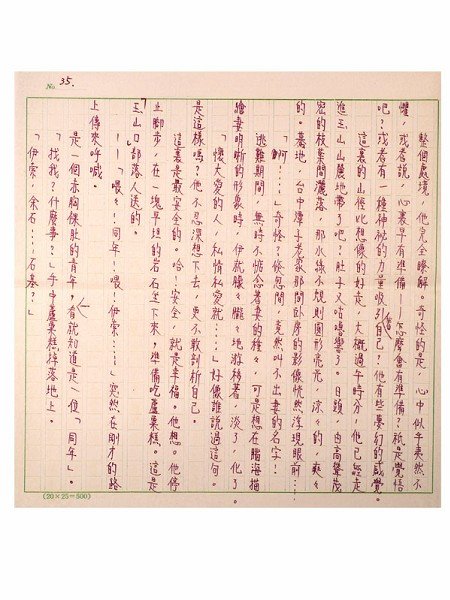 No. 35.
整個處境,他完全瞭解。奇怪的是,心中似乎竟然不
懼,或者說,心裏早有準備——怎麼會有準備?祇是覺悟
吧?或者有一種神祕的力量吸引自己?他有些夢幻的感覺。
這裏的山徑比想像的好走,大概過午時分,他已經走
進三山山麓地帶了吧?肚子又咕嚕響了。日頭,由高聳茂
密的枝葉間灑落,那水綠不規則圓形亮光,涼々的,爽々
的。驀地,台中潭子老家那間臥房的影像恍然浮現眼前…
「啊……」奇怪?倏忽間,竟然叫不出妻的名字?
逃難期間,無時不惦念着妻的種々,可是想在腦海描
繪妻明晰的形象時,伊就朦々朧々地游移著,淡了,化了。
「懷大愛的人,私情私愛就……」好像誰說過這句。
是這樣嗎?他不忍深想下去,更不敢剖析自己。
這裏是最安全的。哈!安全,就是幸福。他想。他停
止腳步,在一塊平坦的岩石坐下來,準備吃蘆粟糕。這是
「三山口」部落人送的。
「——喂々!同年!喂!伊索……」突然在剛才的路
上傳來呼喊。
是一個赤胸裸肚的青年,一看就知道是一位「同年」。
「找我?什麼事?」手中蘆粟糕掉落地上。
「伊索,余石……石基?」
(20×25=500)